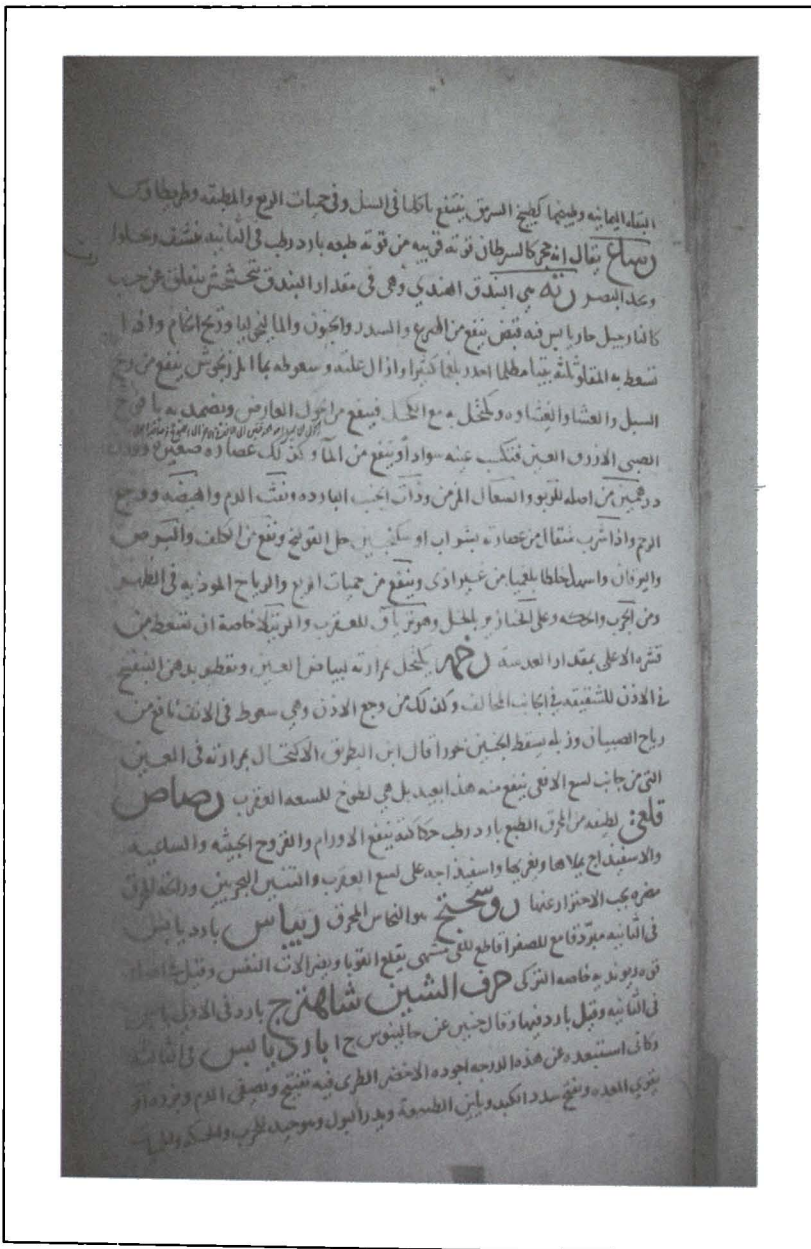 البقله اليمانيه وطبيخها كطبيخ السرمق ينتفع باكلها في السل وفي حميات الربع والمطبقه
يقال انه حجر كالسرطان قوته قريبه من قوته طبعه بارد رطب في الثانيه ينشف ويجلوا
ويحد البصر رته هي البندق الهندي وهي في مقدار البندق يتخشخش ينفلق عن حب
كالنارجيل حار يابس فيه قبض ينفع من الصرع والسدر والجنون والماليخوليا وريح الخام واذا
تسعط به المفلوج ثلثه بيتا مظلما احدر بلغما كثيرا وازال علته وسعوطه بما المرزنجوش ينفع من ريح
السبل والعشا والغشاوه ويكتحل به مع الكحل فينفع من الحول العارض ويضمد به يافوخ
الصبي الازرق العين فتكسب عينه سوادا وينفع من الما وكذلك عصاره
درهمين من اصله للربو والسعال المزمن وذات الجنب البارده ونفث الدم والهيضه ووجع
الرحم واذا شرب مثقال من عصارته بشراب او سكنجبين حل القولنج ونفع من الكلف والبرص
واليرقان واسهل خلطا بلغميا من غير اذى وينفع من حميات الربع والرياح الموذيه في الظهر
ومن الجرب والحكه وعلى الخنازير بالخل وهو ترياق للعقرب والرتيلا خاصة ان تسعط من
قشره الاعلى بمقدار العدسة رخمه يكتحل بمرارته لبياض العين ويقطر بدهن البنفسج
في الاذن للشقيقه في الجانب المخالف وكذلك من وجع الاذن وهي سعوط في الانف نافع من
رياح الصبيان وزبله يسقط الجنين بخورا قال ابن البطريق الاكتحال بمرارته في العين
التي من جانب لسع الافعى ينفع منه هذا بعيد بل هي لطوخ للسعه العقرب رصاص
قلعي لطيفه من المحرق الطبع بارد رطب حكاكته ينفع الاورام والقروح الخبيثه والساعيه
والاسفيداج يملاها ويغريها واسفيذاجه على لسع العقرب والتنين البحريين ورائحه المحرق
مضره يجب الاحتراز عنها روسختج هو النحاس المحرق ريباس بارد يابس
في الثانيه مبرد قامع للصفرا قاطع للقي مشهى يقلع القوبا ويضر الات النفس وقيل
قوه ريونديه خاصه التركى حرف الشين شاهترج بارد في الاولى يابس
في الثانيه وقيل بارد فيها وقال حنين عن جالينوس ج ا بارد يابس في الثالثه
وكانى استبعده عن هذه الدرجه اجوده الاخضر الطرى فيه تفتيح وتصفى الدم
يقوي المعده ويفتح سدد الكبد ويلين الطبيعة ويدر البول وهو جيد للجرب والحكه